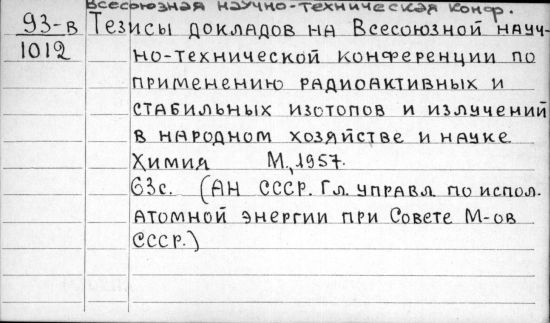 Всесоюзная научно-техническая конф.
93-в Тезисы докладов на Всесоюзной науч-
1012 но-технической конференции по
применению радиоактивных и
стабильных изотопов и излучений
в народном хозяйстве и науке
Химия М., 1957.
63с. (АН СССР. Гл. управл по испол.
атомной энергии при Совете М-ов
СССР.)